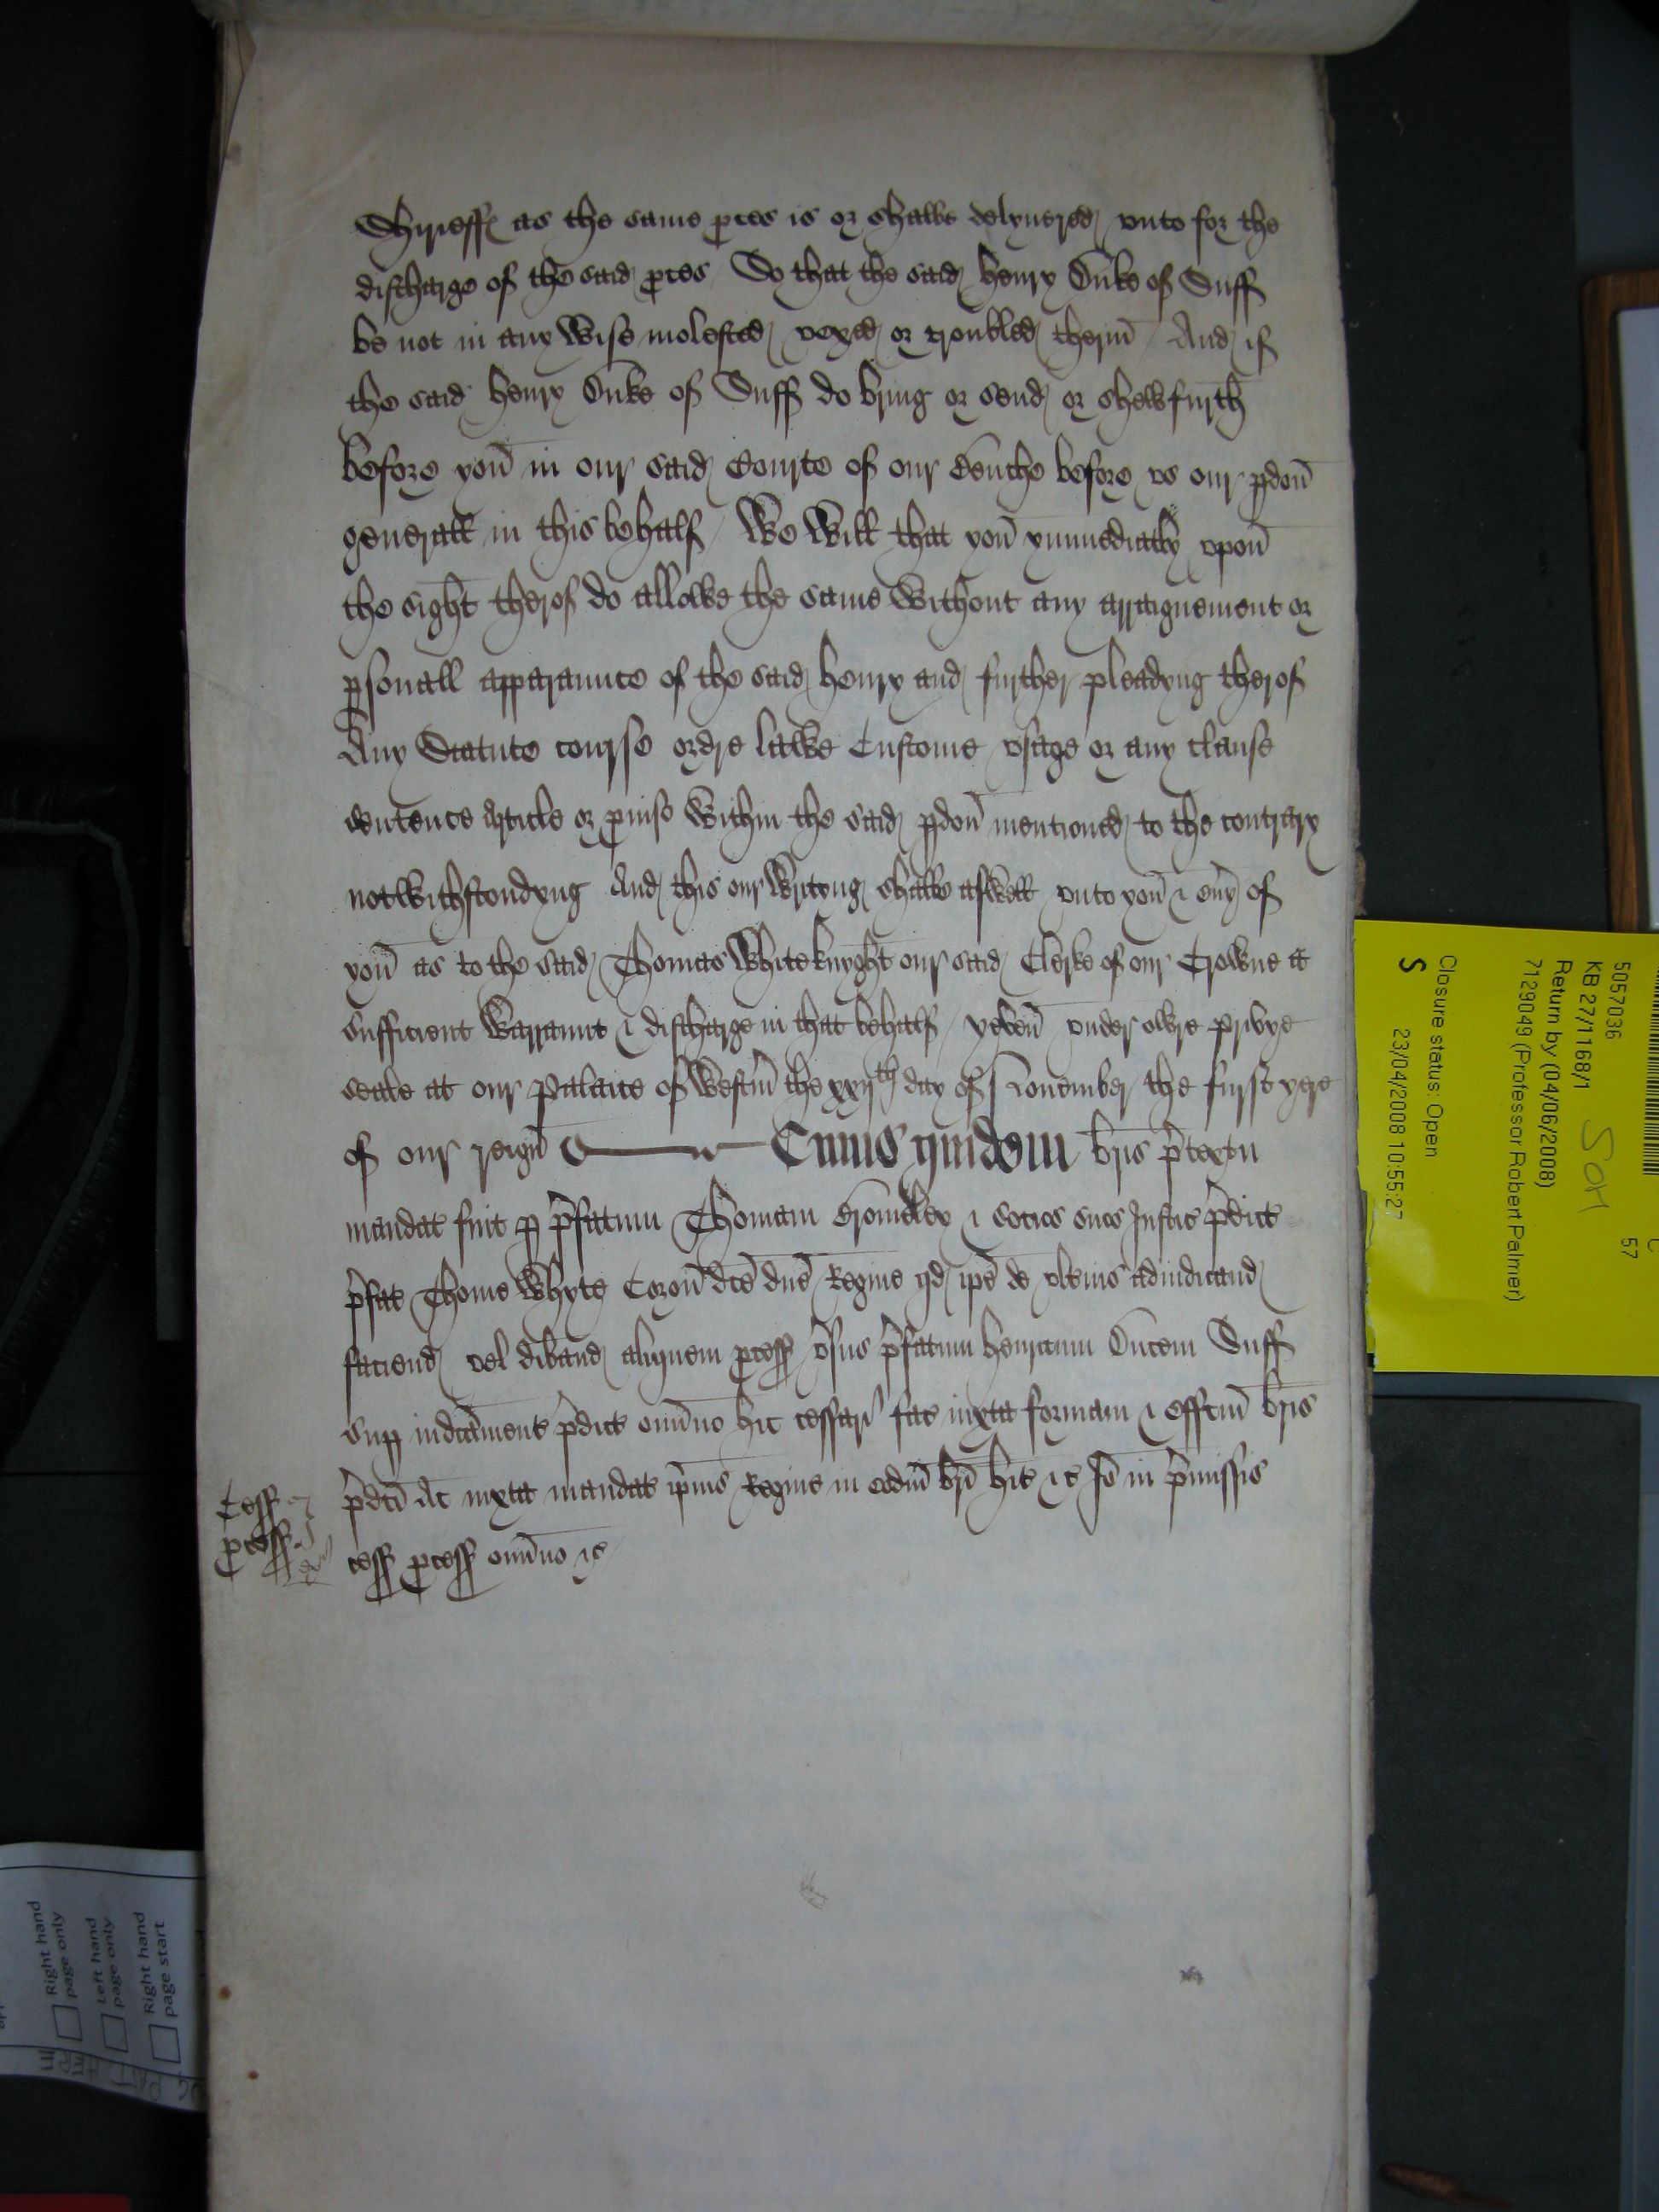 Shirieff as the same p̱ces is or shalbe delyuered vnto for the
discharge of the said p̱ces So that the said Henry Duke of Suff
be not in any Wise molested vexed or troubled therin̄ And if
the said Henry Duke of Suff do bring or send or shew furth
before yoū in our said Courte of our Benche before vs our p̱don̄
generall in this behalf We Will that yoū ymmediatly vpon̄
the sight therof do allowe the same Without any arraignement or
p̱sonall apparaunce of the said Henry and further pleadyng therof
Any Statute course ordre lawe Custome vsage or any clause
sentence Article or p̱uiso Within the said p̱don̄ mentioned to the contrary
notwithstondyng And this our Writeng shalbe aswell vnto yoū & eūy of
yoū as to the said Thomas White knyght our said Clerke of our Crowne a
sufficient Warraunt & discharge in that behalf yeven̄ vnder owre privye
seale at our Palaice of Westm̄ the xxijth day of Nouember the furst yere
of our reign̄ Cuius quidem br̄is p̄textu
mandat fuit p̱ p̄fatum Thomam Bromeley & socios suos Justic p̄dict
p̄fat Thome Whyte Coron̄ dc̄e dn̄e Regine qd ip̄e de vlterius adiudicand
faciend vel agand aliquem p̱cess v̄sus p̄fatum Henricum Ducem Suff
sup̱ indictament p̄dict om̄ino hic cessari fac iuxta formam & effectū br̄is
p̄dc̄i Ac iuxta mandat ip̄ius Regine in eodm̄ br̄i hic &c Iō in p̄missis
cess p̱cess om̄ino &c
Cess
p̱cess
5057036
KB 27/1168/1
Return by (04/06/2008)
7129049 (Professor Robert Palmer)
Closure status: Open
S
23/04/2008 10:55:27
57
Right hand
page only
Left hand
page only
Right hand
page start